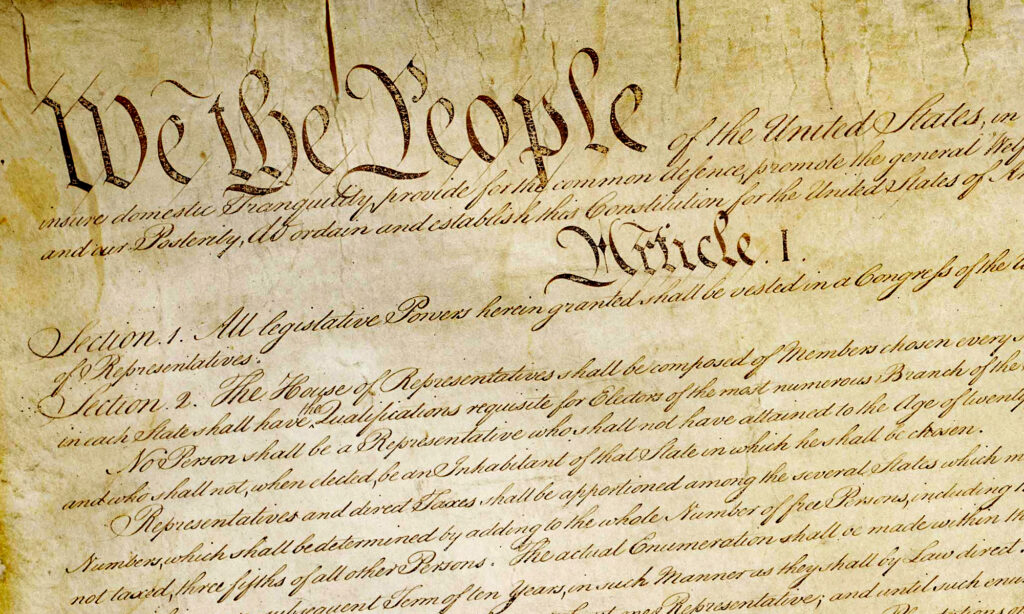 We the People of the United States, in
insure domestic Tranquility, provide for the common defence, promote the general Welf
and our Posterity, do ordain and establish this Constitution for the United States of Am
Article. I.
Section. 1. All legislative Powers herein granted shall be vested in a Congress of the U
of Representatives.
Section. 2. The House of Representatives shall be composed of Members chosen every s
in each State shall have the Qualifications requisite for Electors of the most numerous Branch of the
No Person shall be a Representative who shall not have attained to the Age of twenty
and who shall not, when elected, be an Inhabitant of that State in which he shall be chosen.
Representatives and direct Taxes shall be apportioned among the several States which m
Numbers, which shall be determined by adding to the whole Number of free Persons, including
not taxed, three fifths of all other Persons. The actual Enumeration shall be made within
subsequent Term of ten Years, in such Manner as they shall by Law direct
Representative; and until such enu